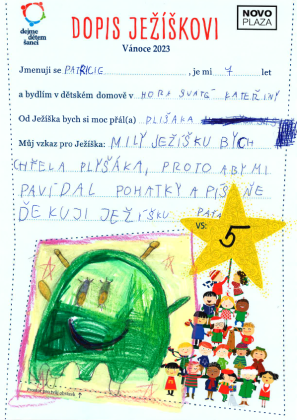 dejme
dětem
šanci
DOPIS JEŽÍŠKOVI
NOVO
PLAZA
Vánoce 2023
Jmenuji se PATRICIG, je mi 7 let
a bydlím v dětském domově v HORA SVATÉ KATEŘINY
Od Ježíška bych si moc přál(a) PLIŠÁKA
Můj vzkaz pro Ježíška: MILÝ JEŽÍŠKU BYCH
CHTĚLA PLYŠÁKA, PROTO ABY MI
PAVÍDAL POHATKY A PÍSNĚ
ĎEKUJI JEŽÍŠKU PATA
VS:
5